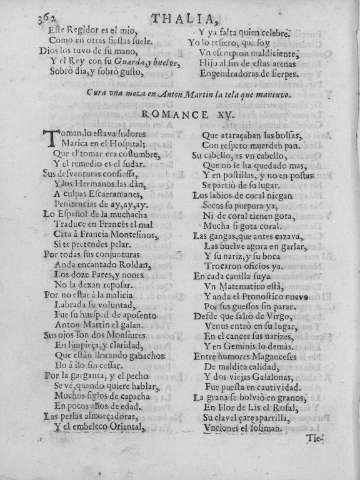 362 THALIA,
Este Regidor es el mio,
Como en otras fiestas suele.
Dios los tuvo de su mano,
Y el Rey con su Guarda, y bueltos,
Sobrò dia, y sobrò gusto,
Y ya falta quien celebre.
Yo lo refiero, que soy
Vn escorpion maldiciente,
Hijo al fin de estas arenas
Engendradoras de sierpes.
Cura vna moza en Anton Martin la tela que mantuvo.
ROMANCE XV.
Tomando estava sudores
Marica en el Hospital;
Que el tomar era costumbre,
Y el remedio es el sudar.
Sus desventuras confiessa,
Y los Hermanos las dàn,
A culpas Escarramanes,
Penitencias de ay, ay, ay.
Lo Español de la muchacha
Traduce en Francès el mal
Cita à Francia Montesinos,
Si te pretendes pelar.
Por todas sus conjunturas
Anda encantado Roldan,
Los doze Pares, y nones
No la dexan reposar.
Por no estàr à la malicia
Labrada su voluntad,
Fue su huesped de aposento
Anton Martin el galan.
Sus ojos son dos Monsiures
En limpieza, y claridad,
Que estàn llorando gabachos
Ilo à ilo sin cessar.
Por la garganta, y el pecho
Se vè, quando quiere hablar,
Muchos siglos de capacha
En pocos años de edad.
Las perlas almorçadoras,
Y el embeleco Oriental,
Que atarazaban las bolsas,
Con respeto muerden pan.
Su cabello, es vn cabello,
Que no le ha quedado mas,
Y en postillas, y no en postas
Se partiò de su lugar.
Los labios de coral niegan
Secos su purpura ya,
Ni de coral tienen gota,
Mucha si gota coral.
Las gangas, que antes cazava,
Las buelve agora en garlar,
Y su nariz, y su boca
Trocaron oficios ya.
En cada canilla suya
Vn Matematico està,
Y anda el Pronostico nuevo
Por sus guessos sin parar.
Desde que saliò de Virgo,
Venus entrò en su lugar,
En el cancer sus narizes,
Y en Geminis lo demàs.
Entre humores Maganceses
De maldita calidad,
Y dos viejas Galalonas,
Fue puesta en cautividad.
La grana se bolviò en granos,
En flor de Lis el Rosal,
Su clavel çarçaparrilla,
Vnciones el soliman.
Tie-